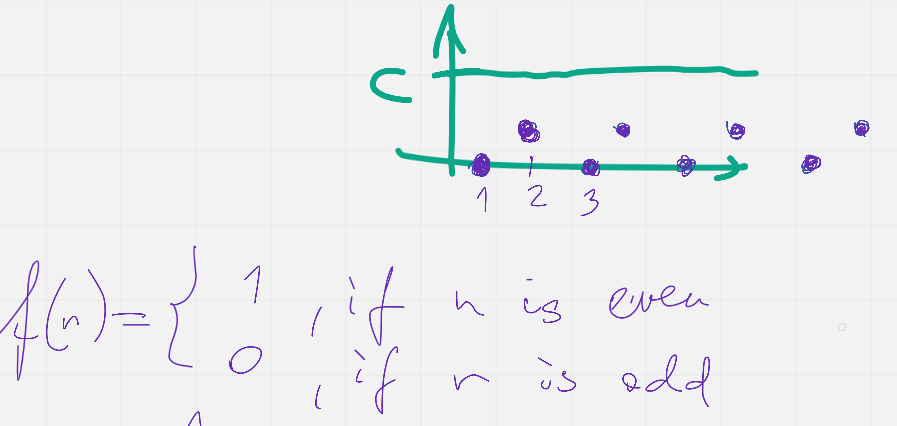 C
1 2 3
f(n) = { 1 , if n is even
0 , if n is odd